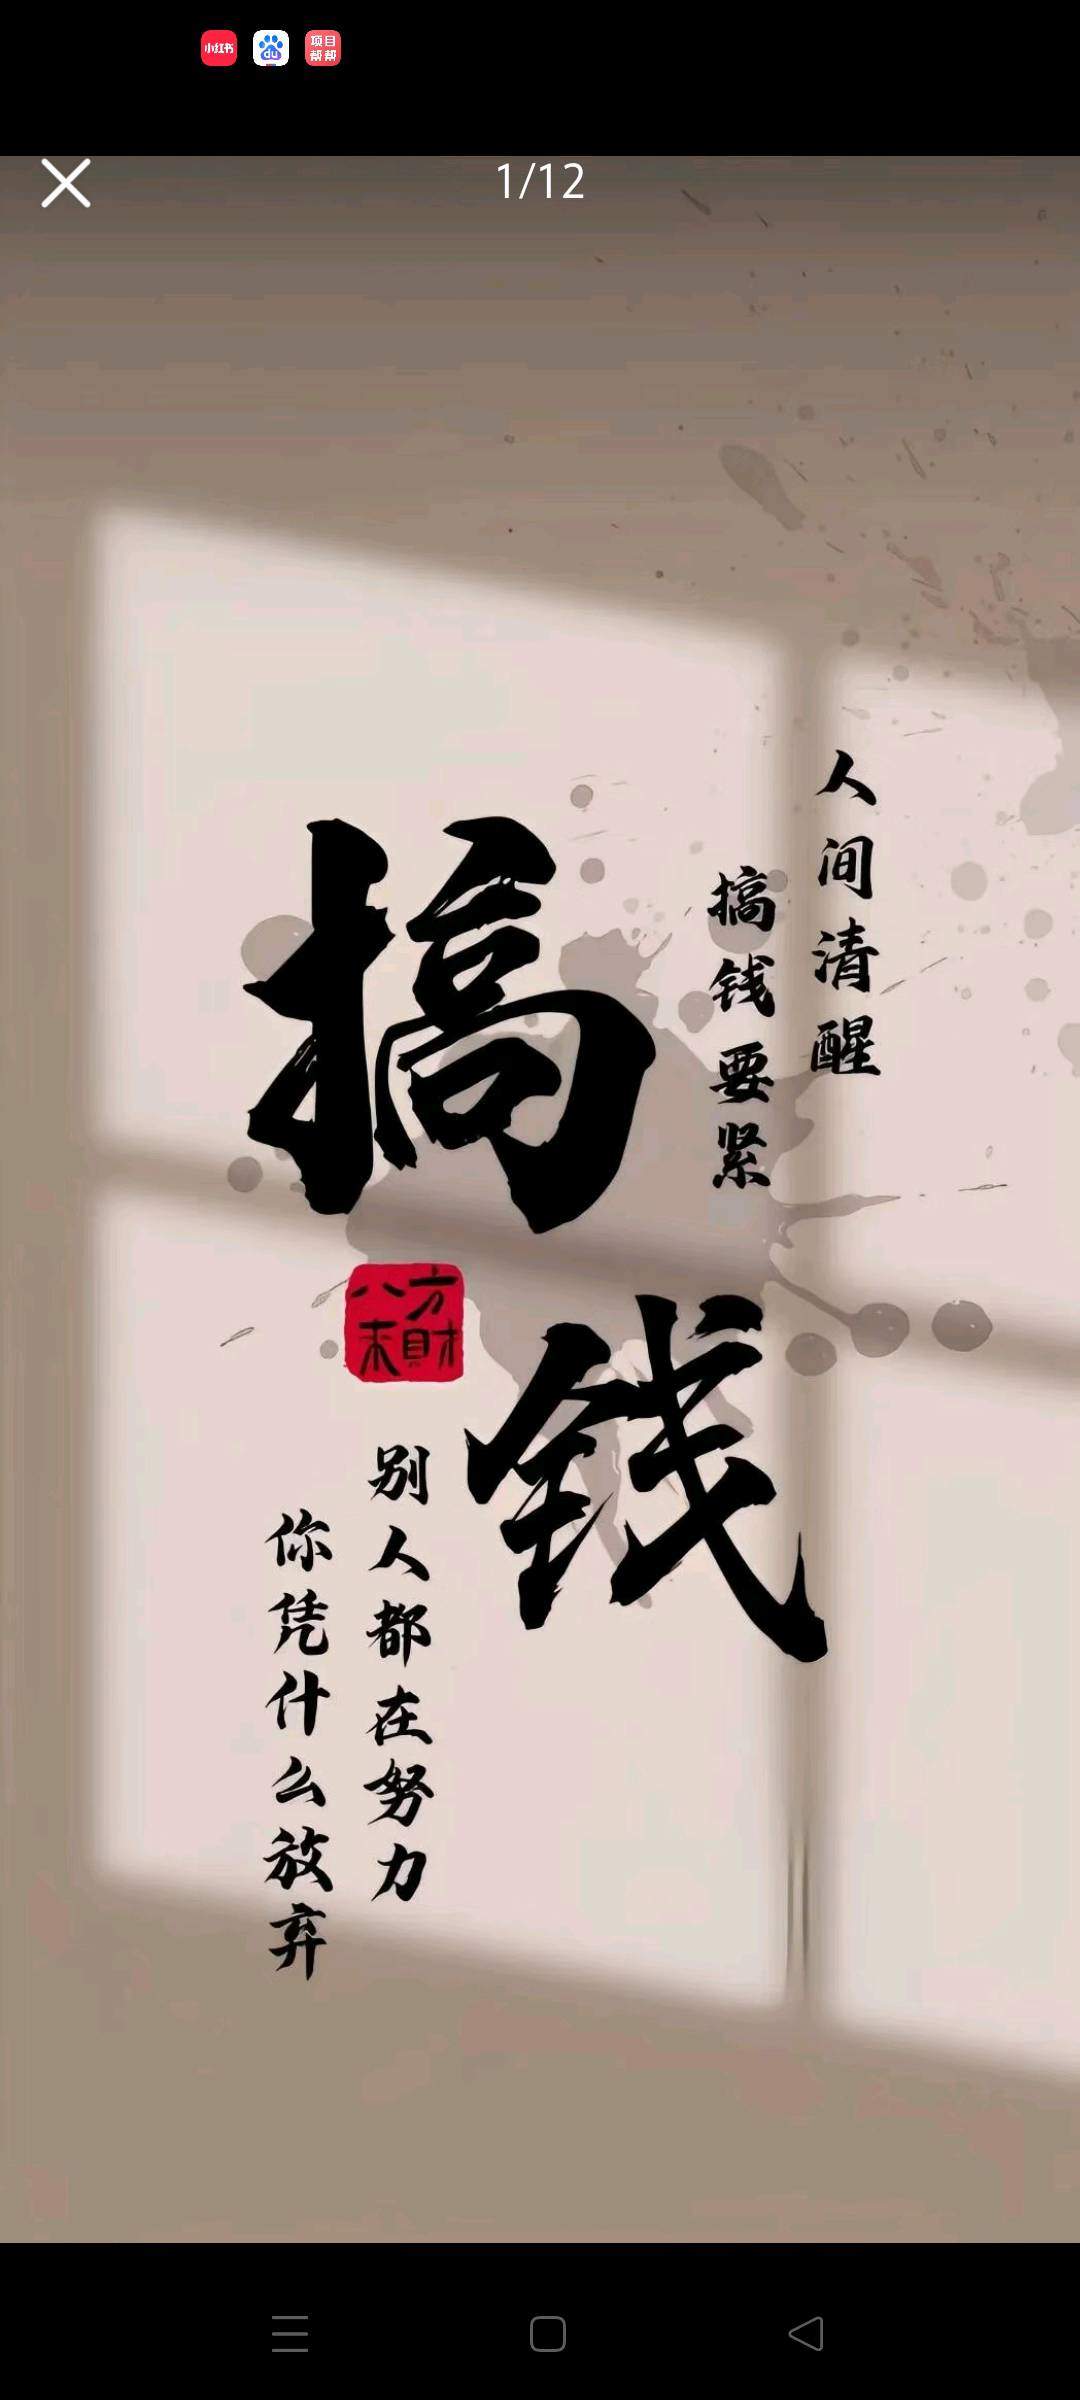 小红书
du
项目
帮帮
1/12
人间清醒
搞钱要紧
搞
钱
八方
来財
别人都在努力
你凭什么放弃